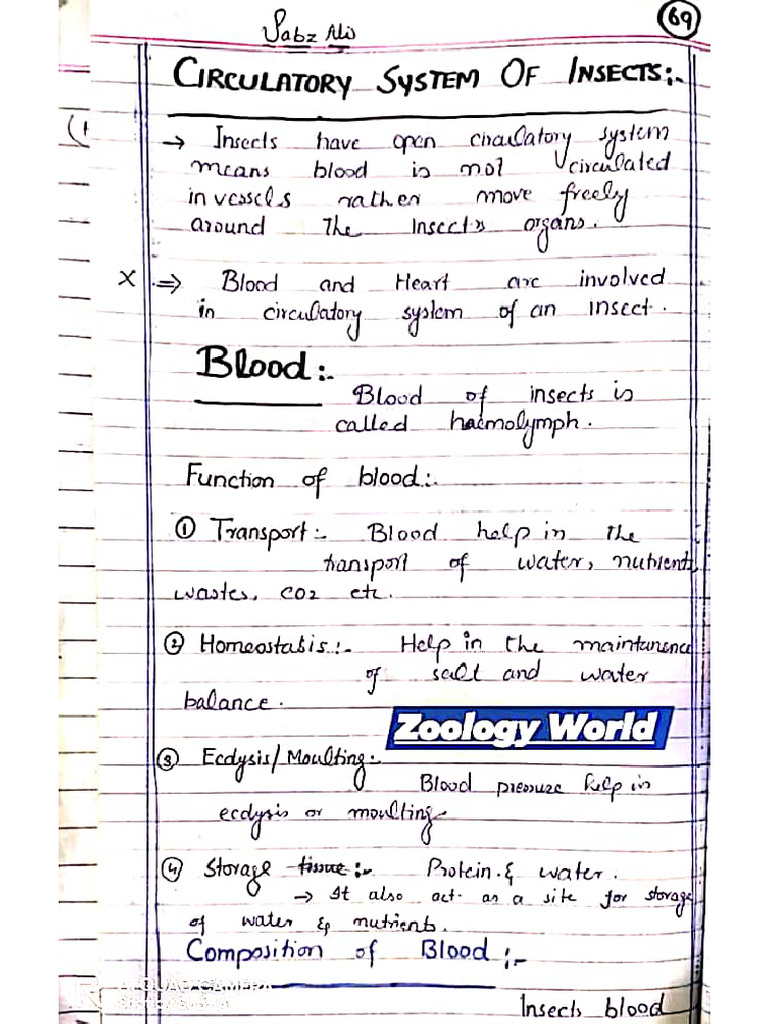 Sabz Ali
69
CIRCULATORY SYSTEM OF INSECTS:-
→ Insects have open circulatory system
means blood is not circulated
in vessels rather move freely
around the insects organs.
X ⇒ Blood and Heart are involved
in circulatory system of an insect.
Blood:-
Blood of insects is
called haemolymph.
Function of blood:-
① Transport:- Blood help in the
transport of water, nutrients
wastes, CO2 etc.
② Homeostasis:- Help in the maintanence
of salt and water
balance.
Zoology World
③ Ecdysis/Moulting:-
Blood pressure help in
ecdysis or moulting.
④ Storage tissue:- Protein & water.
→ It also act as a site for storage
of water & nutrients.
Composition of Blood:-
QUAD CAMERA
Insects blood